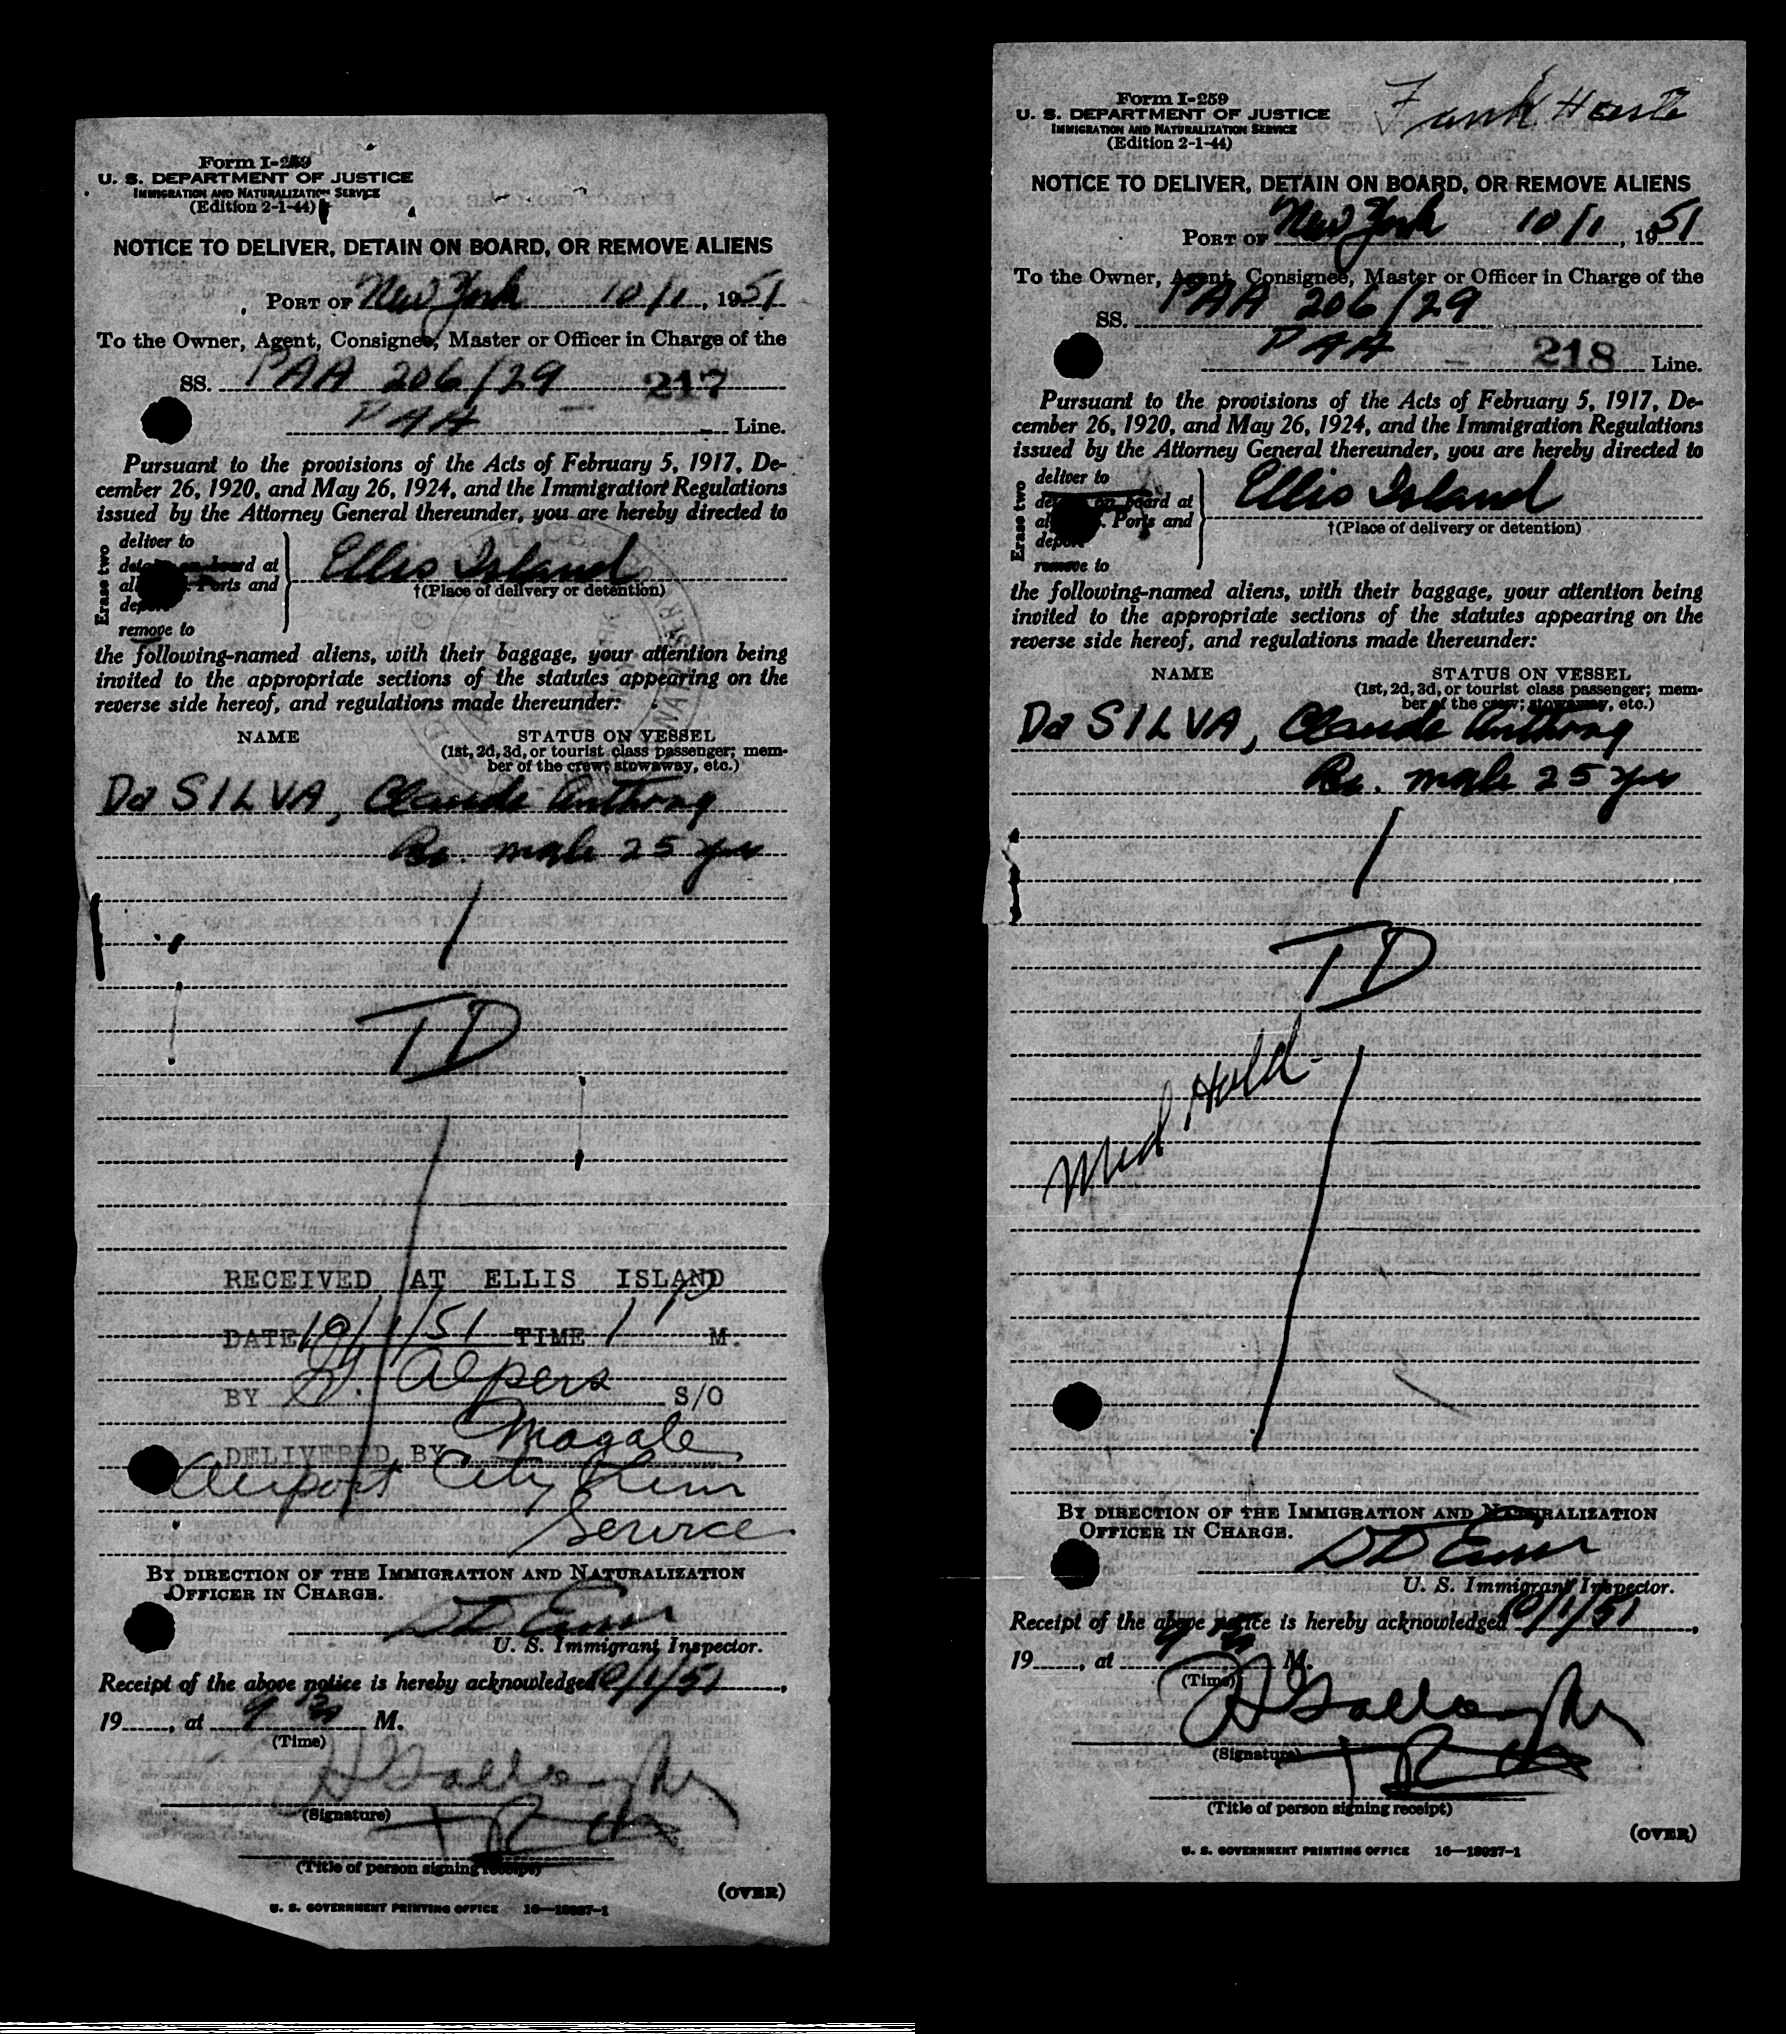 Form I-259
U. S. DEPARTMENT OF JUSTICE
IMMIGRATION AND NATURALIZATION SERVICE
(Edition 2-1-44)
NOTICE TO DELIVER, DETAIN ON BOARD, OR REMOVE ALIENS
PORT OF New York 10/1, 1951
To the Owner, Agent, Consignee, Master or Officer in Charge of the
SS. PAA 206/29 217
PAA — Line.
Pursuant to the provisions of the Acts of February 5, 1917, De-
cember 26, 1920, and May 26, 1924, and the Immigration Regulations
issued by the Attorney General thereunder, you are hereby directed to
Erase two
deliver to
detain on board at
all Ports and
deport
remove to
Ellis Island
†(Place of delivery or detention)
the following-named aliens, with their baggage, your attention being
invited to the appropriate sections of the statutes appearing on the
reverse side hereof, and regulations made thereunder:
NAME STATUS ON VESSEL
(1st, 2d, 3d, or tourist class passenger; mem-
ber of the crew; stowaway, etc.)
Da SILVA, Claude Anthony
Br. male 25 yrs
TD
RECEIVED AT ELLIS ISLAND
DATE 10/1/51 TIME 1 P M.
BY Alpers S/O
DELIVERED BY Magale
Airport City Limo
Service
BY DIRECTION OF THE IMMIGRATION AND NATURALIZATION
OFFICER IN CHARGE.
U. S. Immigrant Inspector.
Receipt of the above notice is hereby acknowledged 10/1/51,
19, at 9 M.
(Time)
(Signature)
(Title of person signing receipt)
(OVER)
U. S. GOVERNMENT PRINTING OFFICE 16—18027-1
Form I-259
U. S. DEPARTMENT OF JUSTICE
IMMIGRATION AND NATURALIZATION SERVICE
(Edition 2-1-44)
Frank
NOTICE TO DELIVER, DETAIN ON BOARD, OR REMOVE ALIENS
PORT OF New York 10/1, 1951
To the Owner, Agent, Consignee, Master or Officer in Charge of the
SS. PAA 206/29
PAA — 218 Line.
Pursuant to the provisions of the Acts of February 5, 1917, De-
cember 26, 1920, and May 26, 1924, and the Immigration Regulations
issued by the Attorney General thereunder, you are hereby directed to
Erase two
deliver to
detain on board at
all Ports and
deport
remove to
Ellis Island
†(Place of delivery or detention)
the following-named aliens, with their baggage, your attention being
invited to the appropriate sections of the statutes appearing on the
reverse side hereof, and regulations made thereunder:
NAME STATUS ON VESSEL
(1st, 2d, 3d, or tourist class passenger; mem-
ber of the crew; stowaway, etc.)
Da SILVA, Claude Anthony
Br. male 25 yrs
TD
Med Hold
BY DIRECTION OF THE IMMIGRATION AND NATURALIZATION
OFFICER IN CHARGE.
U. S. Immigrant Inspector.
Receipt of the above notice is hereby acknowledged 10/1/51,
19, at 9 M.
(Time)
(Signature)
(Title of person signing receipt)
(OVER)
U. S. GOVERNMENT PRINTING OFFICE 16—18027-1